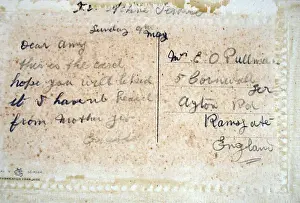 Sunday 9th May
Dear Amy
this is the card
hope you will like
it I havent heard
from Mother yet
Mrs E. O. Pullman
5 Cornwall Ter
Rd
Ramsgate
England